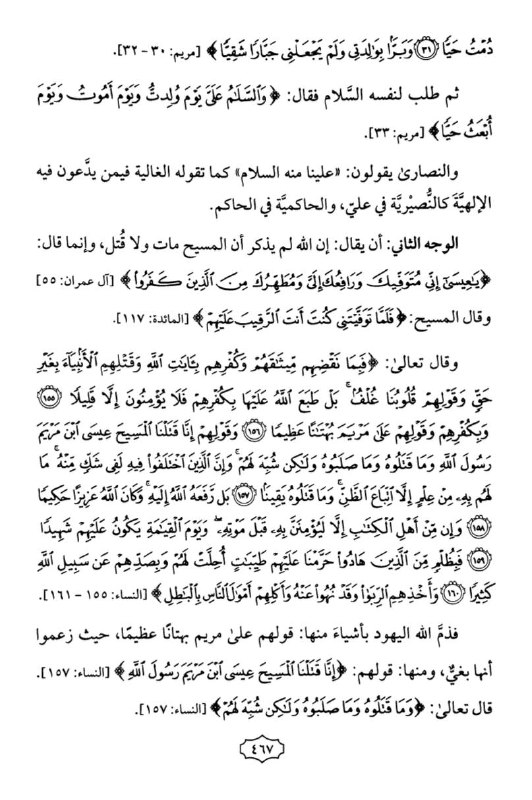 دُمْتُ حَيًّا ﴿٣١﴾ وَبَرًّا بِوَالِدَتِي وَلَمْ يَجْعَلْنِي جَبَّارًا شَقِيًّا ﴾ [مريم: ٣٠ - ٣٢].
ثم طلب لنفسه السَّلام فقال: ﴿ وَالسَّلَامُ عَلَيَّ يَوْمَ وُلِدتُّ وَيَوْمَ أَمُوتُ وَيَوْمَ
أُبْعَثُ حَيًّا ﴾ [مريم: ٣٣].
والنصارىٰ يقولون: «علينا منه السلام» كما تقوله الغالية فيمن يدَّعون فيه
الإلهيَّةَ كالنُّصيْريَّة في عليّ، والحاكميَّة في الحاكم.
الوجه الثاني: أن يقال: إن الله لم يذكر أن المسيح مات ولا قُتل، وإنما قال:
﴿ يَاعِيسَىٰ إِنِّي مُتَوَفِّيكَ وَرَافِعُكَ إِلَيَّ وَمُطَهِّرُكَ مِنَ الَّذِينَ كَفَرُوا ﴾ [آل عمران: ٥٥]
وقال المسيح: ﴿ فَلَمَّا تَوَفَّيْتَنِي كُنتَ أَنتَ الرَّقِيبَ عَلَيْهِمْ ﴾ [المائدة: ١١٧].
وقال تعالىٰ: ﴿ فَبِمَا نَقْضِهِم مِّيثَاقَهُمْ وَكُفْرِهِم بِـَٔايَاتِ اللَّهِ وَقَتْلِهِمُ الْأَنۢبِيَآءَ بِغَيْرِ
حَقٍّ وَقَوْلِهِمْ قُلُوبُنَا غُلْفٌۢ ۚ بَلْ طَبَعَ اللَّهُ عَلَيْهَا بِكُفْرِهِمْ فَلَا يُؤْمِنُونَ إِلَّا قَلِيلًا ﴿١٥٥﴾
وَبِكُفْرِهِمْ وَقَوْلِهِمْ عَلَىٰ مَرْيَمَ بُهْتَٰنًا عَظِيمًا ﴿١٥٦﴾ وَقَوْلِهِمْ إِنَّا قَتَلْنَا الْمَسِيحَ عِيسَى ابْنَ مَرْيَمَ
رَسُولَ اللَّهِ وَمَا قَتَلُوهُ وَمَا صَلَبُوهُ وَلَٰكِن شُبِّهَ لَهُمْ ۚ وَإِنَّ الَّذِينَ اخْتَلَفُوا فِيهِ لَفِي شَكٍّ مِّنْهُ ۚ مَا
لَهُم بِهِۦ مِنْ عِلْمٍ إِلَّا اتِّبَاعَ الظَّنِّ ۚ وَمَا قَتَلُوهُ يَقِينًۢا ﴿١٥٧﴾ بَل رَّفَعَهُ اللَّهُ إِلَيْهِ ۚ وَكَانَ اللَّهُ عَزِيزًا حَكِيمًا
﴿١٥٨﴾ وَإِن مِّنْ أَهْلِ الْكِتَٰبِ إِلَّا لَيُؤْمِنَنَّ بِهِۦ قَبْلَ مَوْتِهِۦ ۖ وَيَوْمَ الْقِيَٰمَةِ يَكُونُ عَلَيْهِمْ شَهِيدًا
﴿١٥٩﴾ فَبِظُلْمٍ مِّنَ الَّذِينَ هَادُوا حَرَّمْنَا عَلَيْهِمْ طَيِّبَٰتٍ أُحِلَّتْ لَهُمْ وَبِصَدِّهِمْ عَن سَبِيلِ اللَّهِ
كَثِيرًا ﴿١٦٠﴾ وَأَخْذِهِمُ الرِّبَوٰا وَقَدْ نُهُوا عَنْهُ وَأَكْلِهِمْ أَمْوَٰلَ النَّاسِ بِالْبَٰطِلِ ﴾ [النساء: ١٥٥ - ١٦١].
فذمَّ الله اليهود بأشياءَ منها: قولهم علىٰ مريم بهتانًا عظيمًا، حيث زعموا
أنها بغيٌّ، ومنها: قولهم: ﴿ إِنَّا قَتَلْنَا الْمَسِيحَ عِيسَى ابْنَ مَرْيَمَ رَسُولَ اللَّهِ ﴾ [النساء: ١٥٧].
قال تعالىٰ: ﴿ وَمَا قَتَلُوهُ وَمَا صَلَبُوهُ وَلَٰكِن شُبِّهَ لَهُمْ ﴾ [النساء: ١٥٧].
٤٦٧